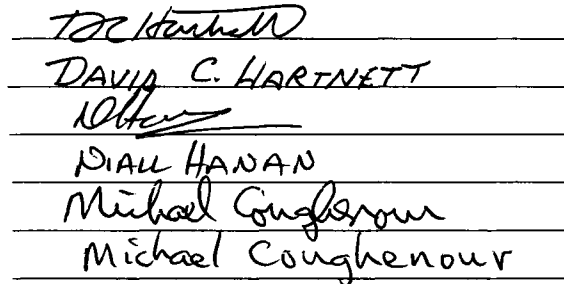 DC Hartnett
DAVID C. HARTNETT
NHan
NIALL HANAN
Michael Coughenour
Michael Coughenour